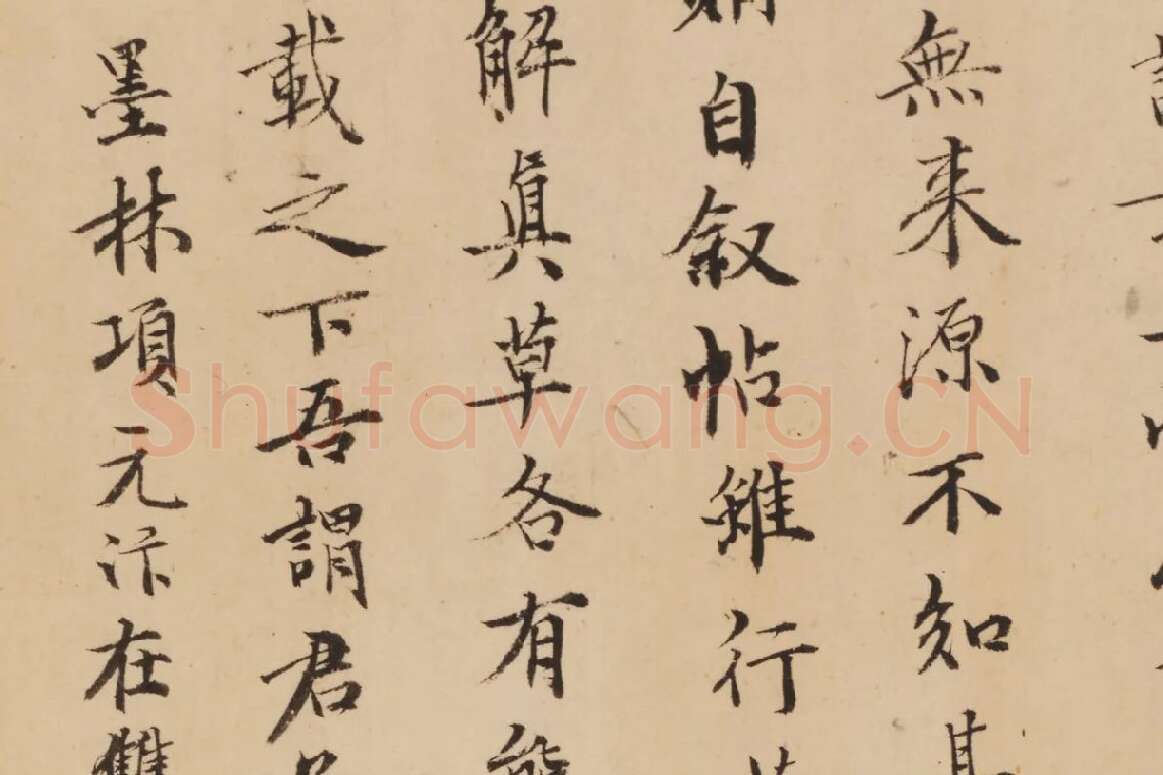 無来源不知其
自叙帖雖行
解真草各有能
載之下吾謂君
墨林項元汴在雙
Shufawang.CN